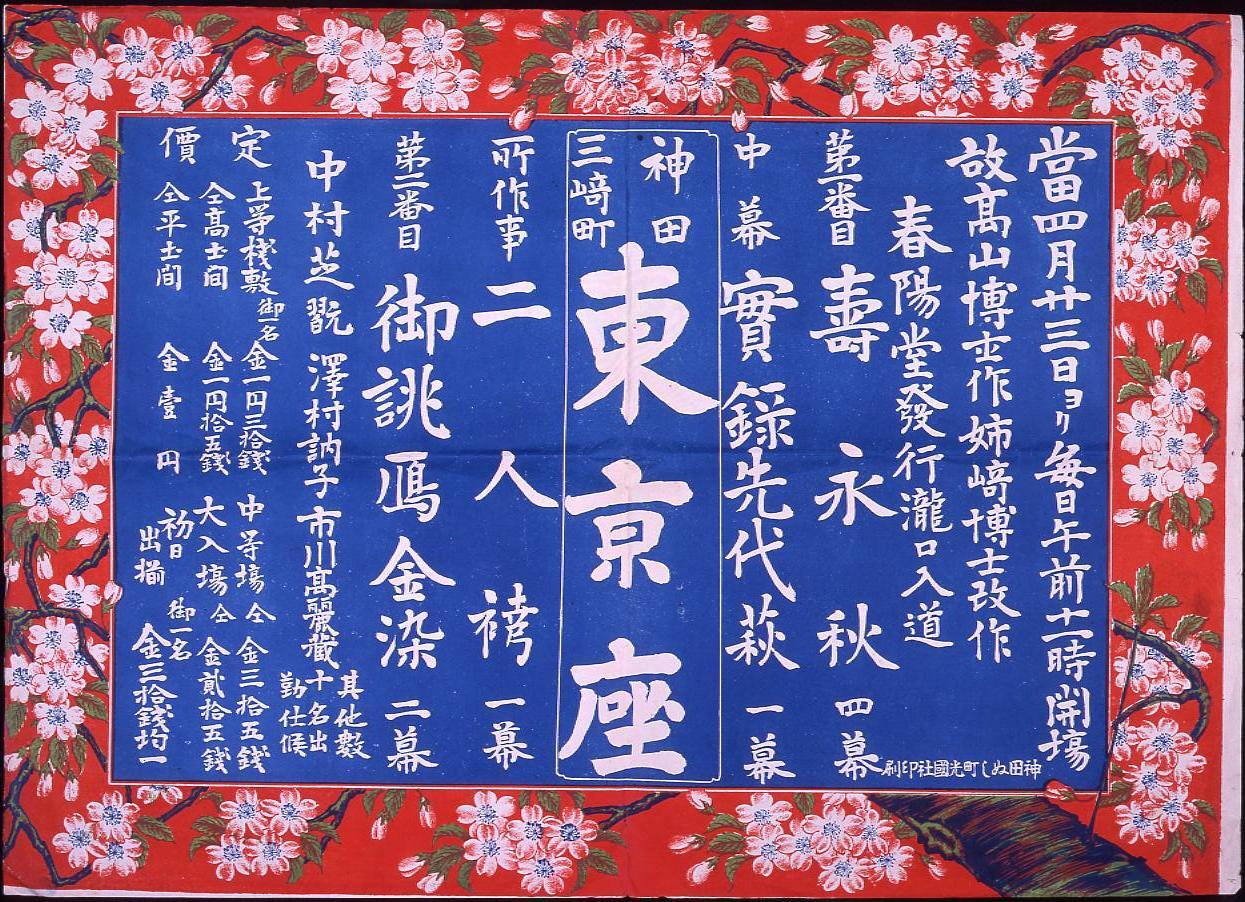 當四月廿三日ヨリ毎日午前十一時開塲
故髙山博士作姉﨑博士改作
春陽堂發行瀧口入道
第一番目 壽永秋 四幕
中幕 實録先代萩 一幕
神田
三﨑町
東京座
所作事 二人袴 一幕
第二番目 御誂鴈金染 二幕
中村芝翫 澤村訥子 市川髙麗藏
其他數
十名出
勤仕候
定價
上等棧敷 御一名 金一円三拾錢
仝髙土間 金一円拾五錢
仝平土間 金壹円
中等塲 仝 金三拾五錢
大入塲 仝 金貳拾五錢
初日出揃 御一名 金三拾錢均一
神田ぬし町光國社印刷